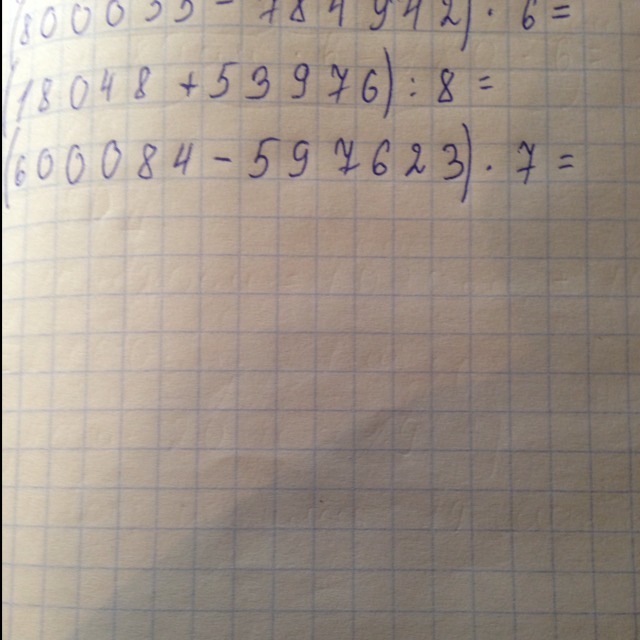 - 784942) · 6 =
(18048 + 53976) : 8 =
(600084 - 597623) · 7 =